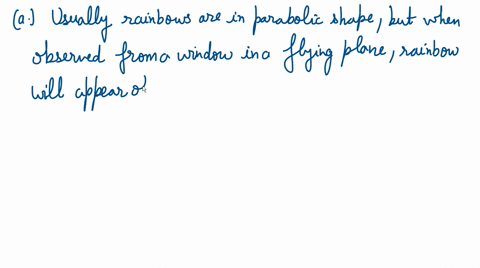 (a.) Usually rainbows are in parabolic shape, but when
observed from a window in a flying plane, rainbow
will appear